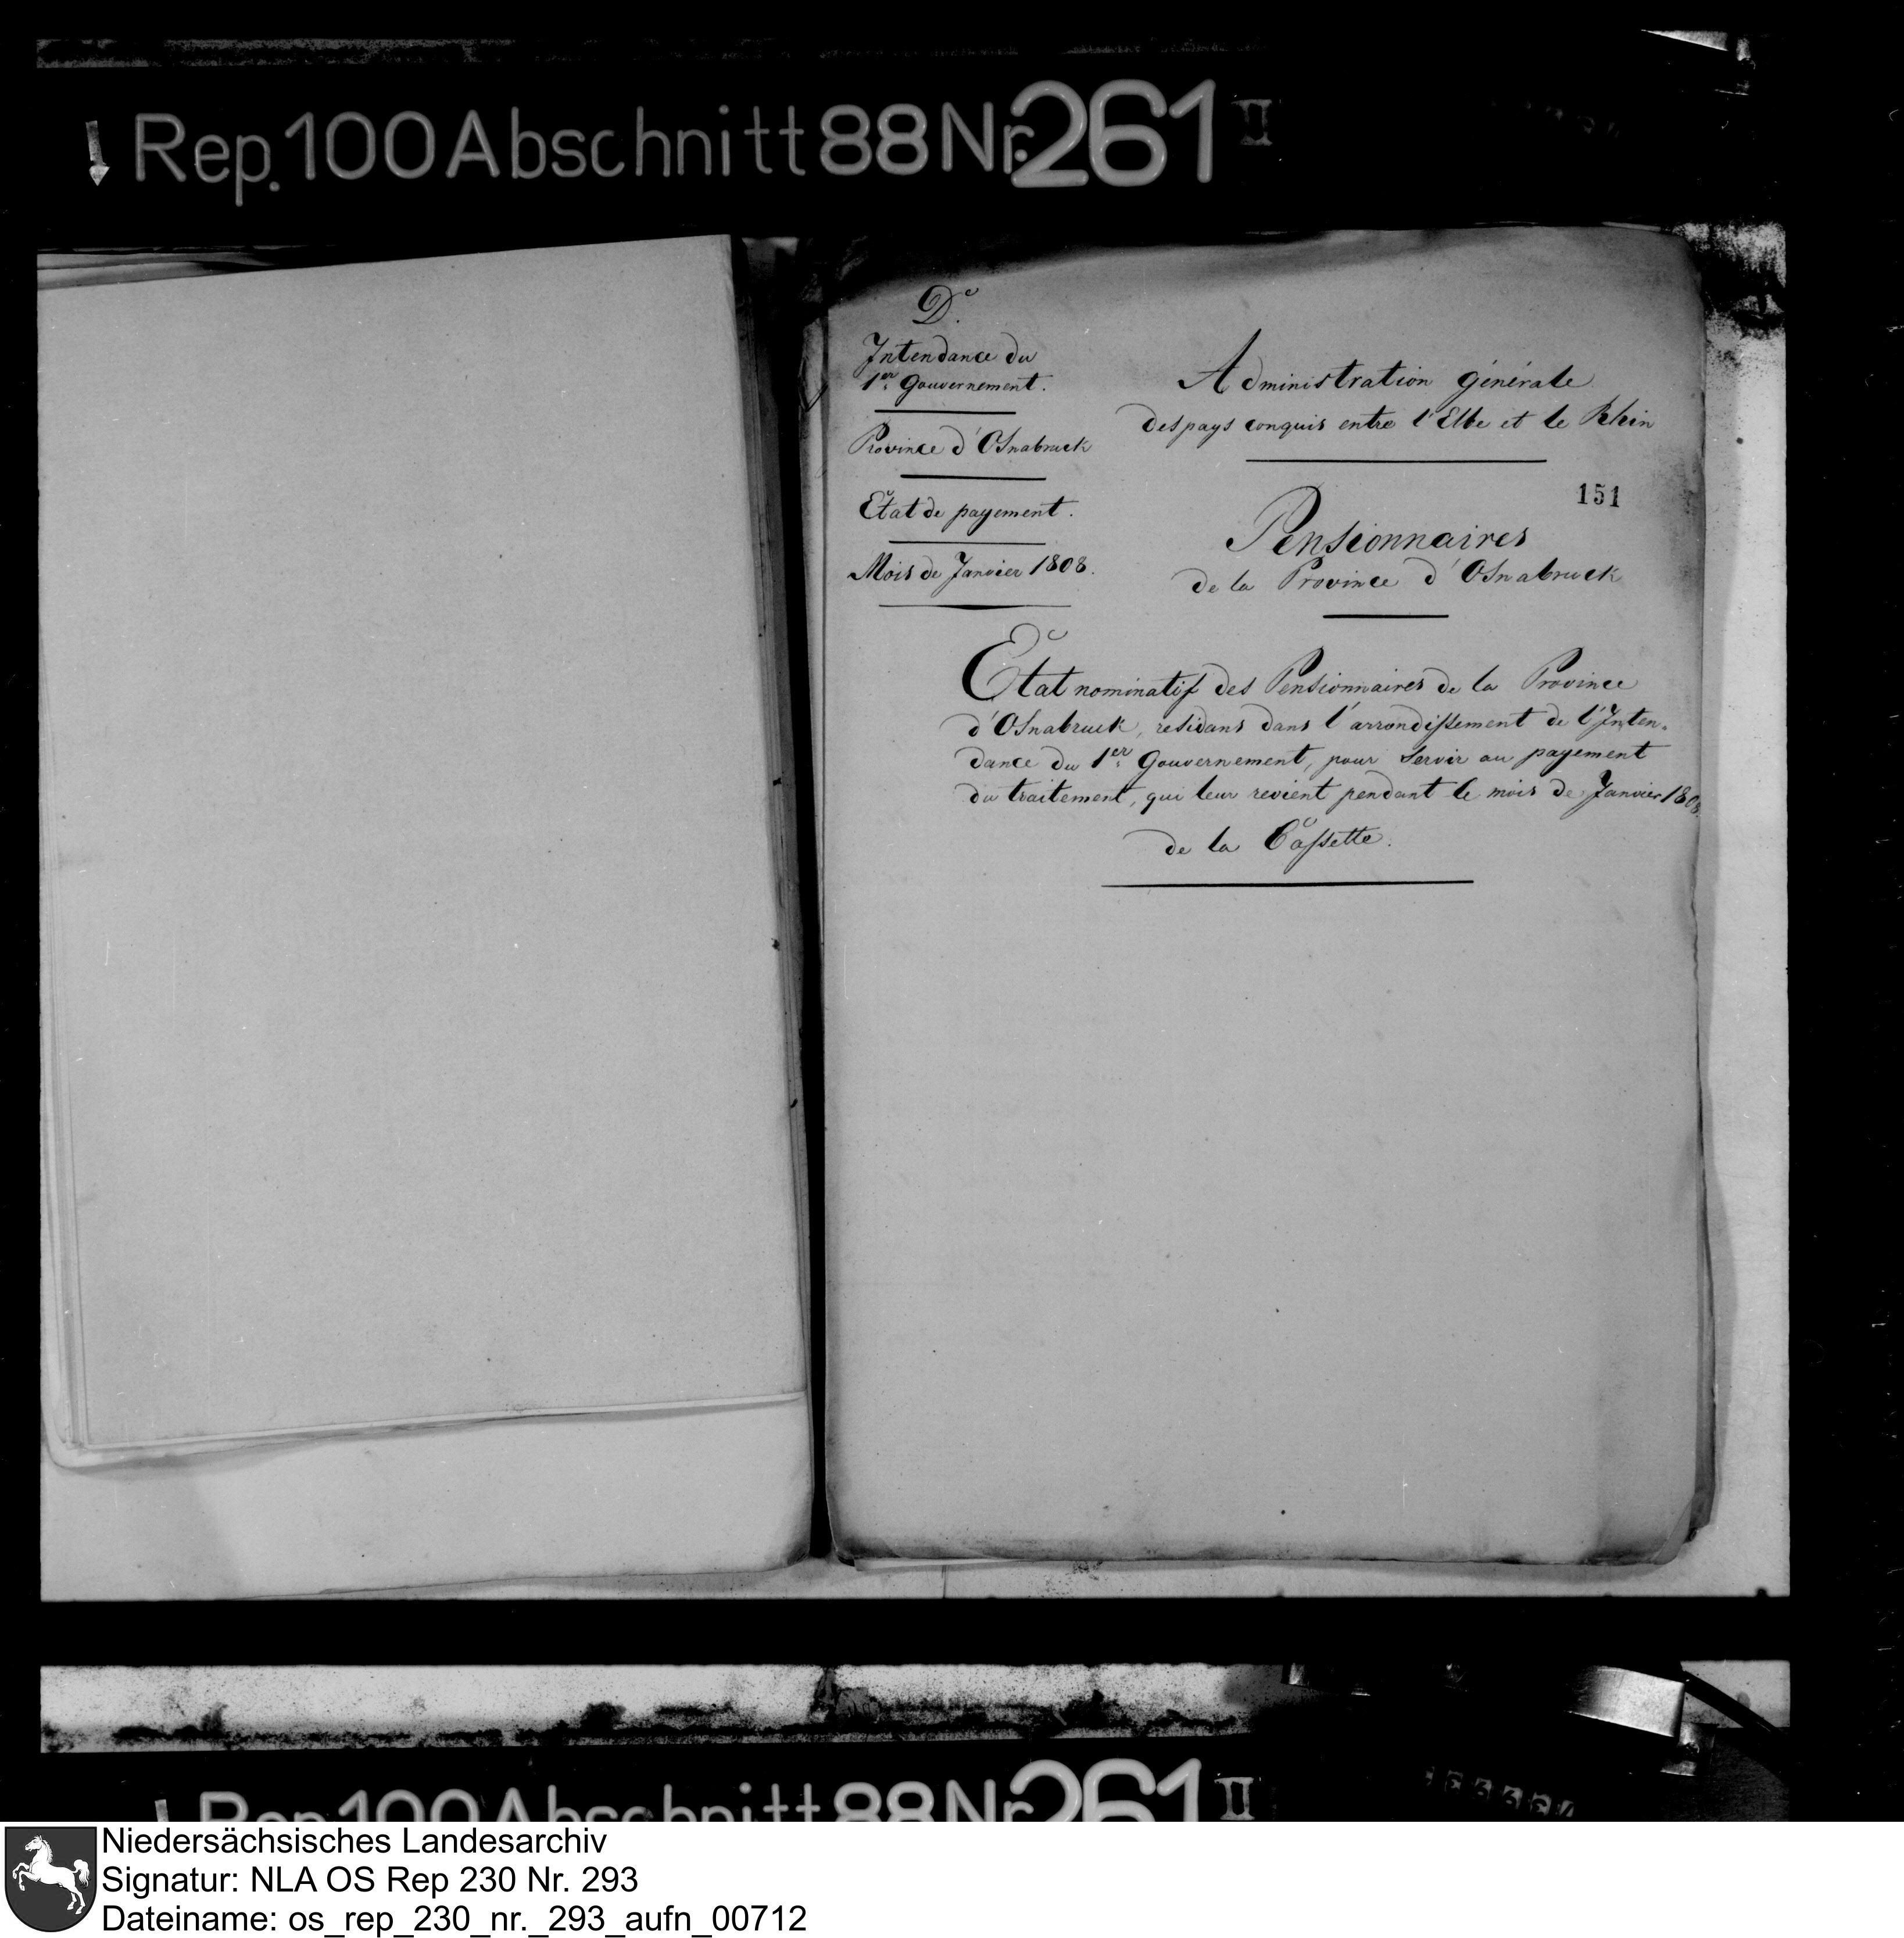 Rep. 100 Abschnitt 88 Nr. 261 II
D.
Intendance du
1er. Gouvernement.
Province d'Osnabruck
Etat de payement.
Mois de Janvier 1808.
Administration générale
des pays conquis entre l'Elbe et le Rhin
151
Pensionnaires
de la Province d'Osnabruck
Etat nominatif des Pensionnaires de la Province
d'Osnabruck, residans dans l'arrondissement de l'Inten-
dance du 1er. Gouvernement, pour servir au payement
du traitement, qui leur revient pendant le mois de Janvier 1808.
de la Cassette.
Rep. 100 Abschnitt 88 Nr. 261 II
Niedersächsisches Landesarchiv
Signatur: NLA OS Rep 230 Nr. 293
Dateiname: os_rep_230_nr._293_aufn_00712